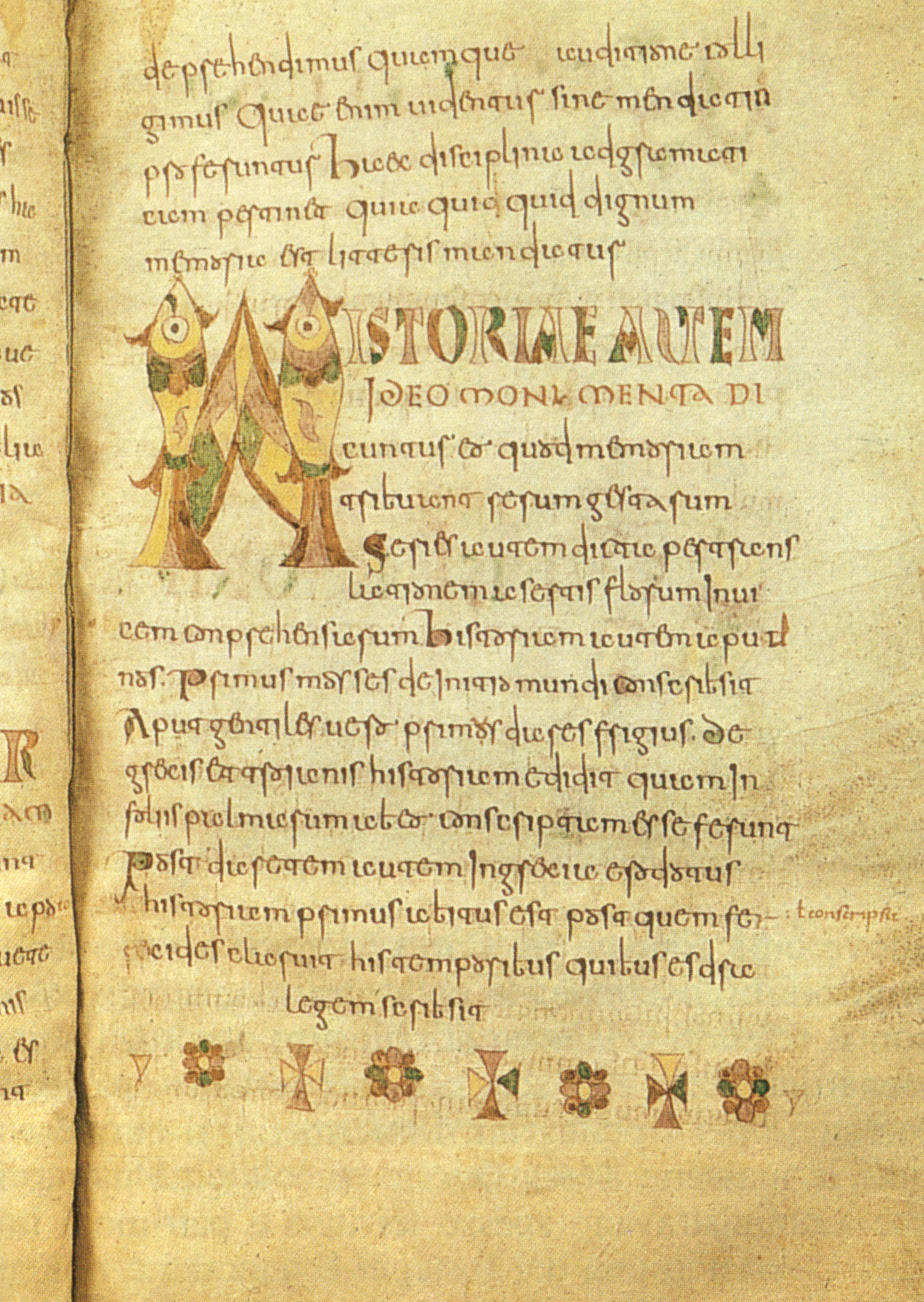 deprehendimus quam que auditione colli
gimus Quae enim uidentur sine mendatio
proferuntur Haec disciplina ad gramati
cam pertinet quia quic quid dignum
memoria est litteris mandatur
HISTORIAE AUTEM
IDEO MONUMENTA DI
cuntur eo quod memoriam
tribuant rerum gestarum
Series autem dicta per trans
lationem a sertis florum Inui
cem conprehensarum historiam autem aput
nos. Primus moyses de Initio mundi conscribsit
Aput gentiles uero primos dares frigius. de
grecis et troianis historiam edidit quam In
foliis palmarum ab eo conscriptam esse ferunt
Post daretem autem In grecia erodotus
historiam primus abitus est post quem fe
recides claruit his temporibus quibus esdra
legem scribsit